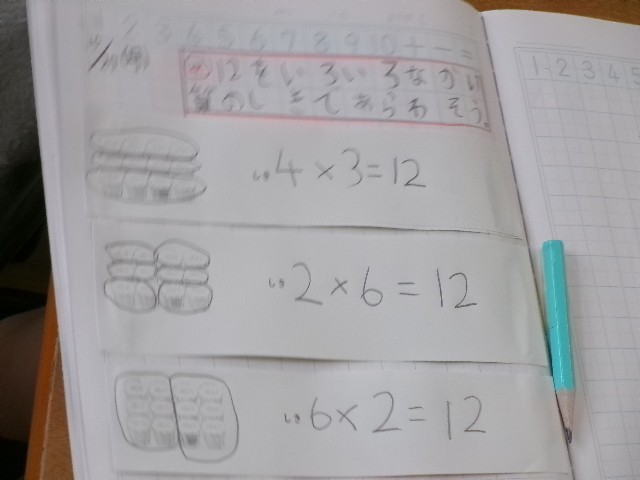 1 2 3 4 5 6 7 8 9 10 + - =
12をいろいろなかけ
算のしきであらわそう。
4×3=12
2×6=12
6×2=12
1 2 3 4 5